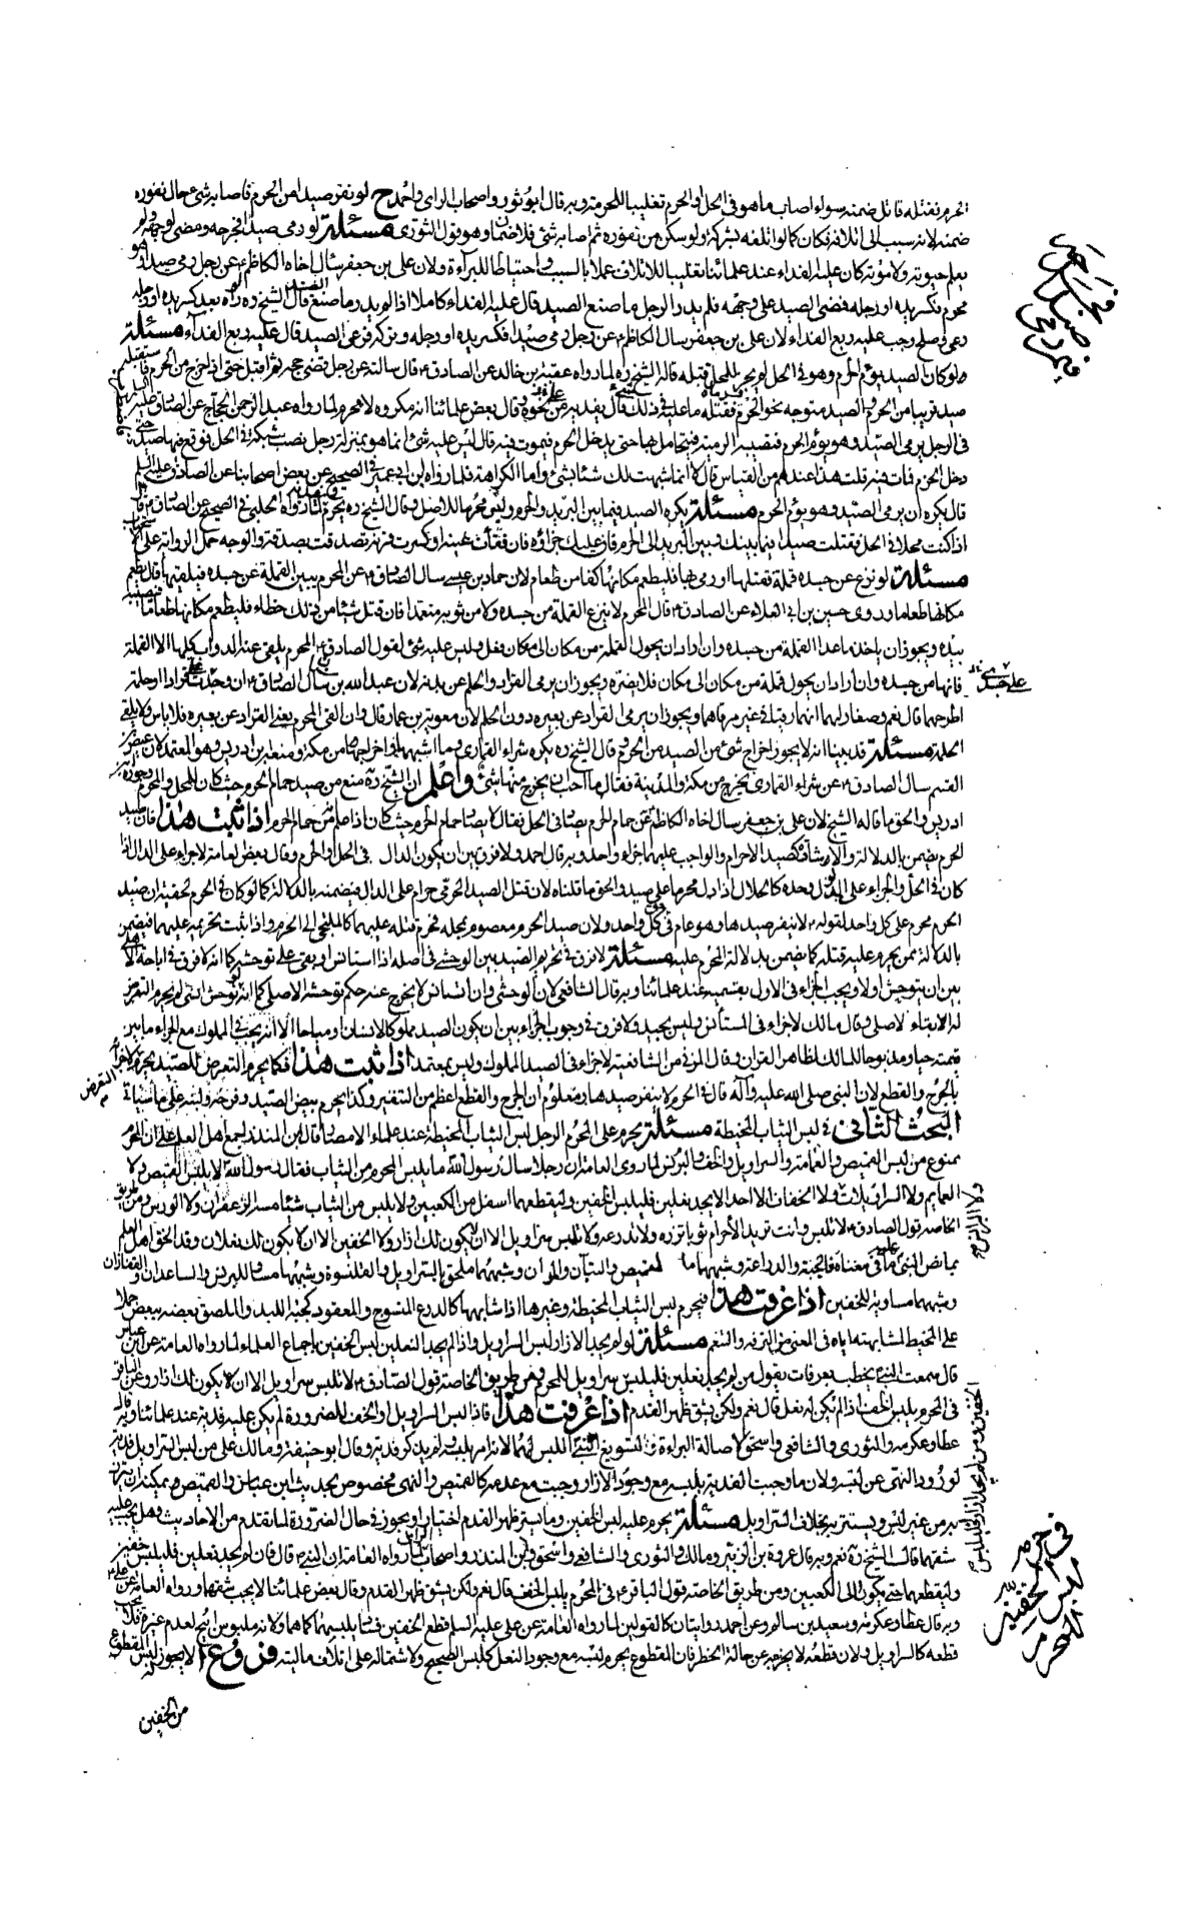 الحرم فقتله فاتل ضمنه سواء اصاب ما هو فى الحل او الحرم تغليبا للحرمة وبه قال ابو ثور واصحاب الراى واحمد ح لو نفر صيدا من الحرم فاصابه شئ حال نفوره
ضمنه لانه سبب الى اتلافه فكان كما لو اتلفه بشركه ولو سكن من نفوره ثم اصابه شئ فلا ضمان وهو قول الثورى مسئلة لو رمى صيدا فجرحه ومضى لوجهه ولم
يعلم حيوته ولا موته كان عليه الفداء عند علمائنا تغليبا للاتلاف عملا بالسبب واحتياطا للبراءة ولان على بن جعفر سال اخاه الكاظم عن رجل رمى صيدا وهو
محرم فكسر يده او رجله فمضى الصيد على وجهه فلم يدر الرجل ما صنع الصيد قال عليه الفداء كاملا اذا لم يدر ما صنع الصيد قال الشيخ ره لو راه بعد كسر يده او رجله
رعى وصلح وجب عليه ربع الفداء لان على بن جعفر سال الكاظم عن رجل رمى صيدا فكسر يده او رجله وتركه فرعى الصيد قال عليه ربع الفداء مسئلة
ولو كان الصيد يؤم الحرم وهو فى الحل لم يجز للمحل قتله قاله الشيخ ره لما رواه عقبة بن خالد عن الصادق ع قال سالته عن رجل قضى حجه ثم اقبل حتى اذا خرج من الحرم فاستقبله
صيد قريبا من الحرم والصيد متوجه نحو الحرم فقتله ما عليه فى ذلك قال يفديه على نحوه وقال بعض علمائنا انه مكروه لا محرم لما رواه عبد الرحمن الحجاج عن الصادق
فى الرجل يرمى الصيد وهو يؤم الحرم فتصيبه الرمية فيتحامل بها حتى يدخل الحرم فيموت فيه قال ليس عليه شئ انما هو بمنزلة رجل نصب شبكة فى الحل فوقع فيها صيد
دخل الحرم فمات فيه قلت هذا عندهم من القياس قال لا انما شبهت لك شيئا بشئ واما الكراهة فلما رواه ابن ابى عمير فى الصحيح عن بعض اصحابنا عن الصادق عليه السلم
قال يكره ان يرمى الصيد وهو يؤم الحرم مسئلة يكره الصيد فيما بين البريد والحرم وليس محرما للاصل وقال الشيخ ره يحرم لما رواه الحلبى فى الصحيح عن الصادق ع قال
اذا كنت محلا فى الحل فقتلت صيدا فيما بينك وبين البريد الى الحرم فان عليك جزاؤه فان فقأت عينه او كسرت قرنه تصدقت بصدقة والوجه حمل الرواية على الاستحباب
مسئلة لو نزع عن جسده قملة فقتلها او رمى بها فليطعم مكانها كفا من طعام لان حماد بن عيسى سال الصادق ع عن المحرم يبين القملة عن جسده فيلقيها قال يطعم
مكانها طعاما وروى حسين بن ابى العلاء عن الصادق ع قال المحرم لا ينزع القملة من جسده ولا من ثوبه متعمدا فان قتل شيئا من ذلك خطاء فليطعم مكانها طعاما قبضة
بيده ويجوز ان ياخذ ما عدا القملة من جسده وان اراد ان يحول القملة من مكان الى مكان فعل وليس عليه شئ لقول الصادق ع المحرم يلقى عنه الدواب كلها الا القملة
فانها من جسده وان اراد ان يحول قملة من مكان الى مكان فلا يضره ويجوز ان يرمى القراد والحلم عن بدنه لان عبد الله بن سال الصادق ع ان وجدت على قرادا او حلمة
اطرحهما قال نعم وصغار لهما انهما رقيا فى غير مرقاهما ويجوز ان يرمى القراد عن بعيره دون الحلم لان معوية بن عمار قال وان القى المحرم القراد عن بعيره فلا باس ولا يلقى
الحلمة مسئلة قد بينا انه لا يجوز اخراج شئ من الصيد من الحرم وقال الشيخ ره يكره شراء القمارى وما اشبهها واخراجها من مكة ومنعه ابن ادريس وهو المعتمد لان عيص بن
القسم سال الصادق ع عن شراء القمارى يخرج من مكة والمدينة فقال ما احب ان يخرج منهما شئ واعلم ان الشيخ ره منع من صيد حمام الحرم حيث كان للمحل والمحرم وجوزه ابن
ادريس والحق ما قاله الشيخ لان على بن جعفر سال اخاه الكاظم عن حمام الحرم يصاد فى الحل فقال لا يصاد حمام الحرم حيث كان اذا علم انه من حمام الحرم اذا ثبت هذا فان صيد
الحرم يضمن بالدلالة والارشاد كصيد الاحرام والواجب عليهما جزاء واحد وبه قال احمد ولا فرق بين ان يكون الدال فى الحل او الحرم وقال بعض العامة لا جزاء على الدال اذا
كان فى الحل والجزاء على المدلول وحده كالحلال اذا دل محرما على صيد والحق ما قلناه لان قتل الصيد الحرمى حرام على الدال فيضمنه بالدلالة كما لو كان فى الحرم تحقيقه ان صيد
الحرم محرم على كل واحد لقوله ع لا ينفر صيدها وهو عام فى كل واحد ولان صيد الحرم معصوم بمحله فحرم قتله عليهما كالملتجى الى الحرم واذا ثبت تحريمه عليهما فيضمن
بالدلالة من يحرم عليه قتله كما يضمن بدلالة المحرم عليه مسئلة لا فرق فى تحريم الصيد بين الوحشى فى اصله اذا استانس او بقى على توحشه كما انه لا فرق فى اباحة الاهلى
بين ان يتوحش او لا ويجب الجزاء فى الاول بقسميه عند علمائنا وبه قال الشافعى لان الوحشى وان استانس لا يخرج عنه حكم توحشه الاصلى كما انه لو توحش انسى لم يحرم التعرض
له الابقاء لاصلى وقال مالك لا جزاء فى المستأنس وليس بجيد ولا فرق فى وجوب الجزاء بين ان يكون الصيد مملوكا لانسان او مباحا الا انه يجب فى المملوك مع الجزاء ما بين
قيمته حيا ومذبوحا لمالكه لظاهر القران وقال المزنى من الشافعية لا جزاء فى الصيد المملوك وليس بمعتمد اذا ثبت هذا فكما يحرم التعرض للصيد يحرم لاجزائه
بالجرح والقطع لان النبى صلى الله عليه وآله قال فى الحرم لا ينفر صيدها ومعلوم ان الجرح والقطع اعظم من التنفير وكذا يحرم بيض الصيد وفرخه ولبنه على ما سياتى
البحث الثانى فى لبس الثياب المخيطة مسئلة يحرم على المحرم الرجل لبس الثياب المخيطة عند علماء الامصار قال ابن المنذر اجمع اهل العلم على ان المحرم
ممنوع من لبس القميص والعمامة والسراويل والخف والبرنس لما روى العامة ان رجلا سال رسول الله ما يلبس المحرم من الثياب فقال رسول الله لا يلبس القميص ولا
العمايم ولا السراويلات ولا الخفاف الا احدا لا يجد نعلين فليلبس الخفين وليقطعهما اسفل من الكعبين ولا يلبس من الثياب شيئا مسه الزعفران ولا الورس ومن طريق
الخاصة قول الصادق ع لا تلبس وانت تريد الاحرام ثوبا تزره ولا تدرعه ولا تلبس سراويل الا ان لا يكون لك ازار ولا الخفين الا ان لا يكون لك نعلان وقد الحق اهل العلم
بما نص النبى ع ما فى معناه فالجبة والدراعة وشبههما ملحق بالقميص والتبان والران وشبههما ملحق بالسراويل والقلنسوة وشبهها مساو للبرنس والساعدان والقفازان
وشبههما مساوية للخفين اذا عرفت هذا فيحرم لبس الثياب المخيطة وغيرها اذا شابهها كالدرع المنسوج والمعقود كجبة اللبد والملصق بعضه ببعض حملا
على المخيط لمشابهته اياه فى المعنى من الترفه والتنعم مسئلة لو لم يجد الازار لبس السراويل واذا لم يجد النعلين لبس الخفين باجماع العلماء لما رواه العامة عن ابن عباس
قال سمعت النبى ع يخطب بعرفات يقول من لم يجد نعلين فليلبس سراويل للمحرم ومن طريق الخاصة قول الصادق ع لا تلبس سراويل الا ان لا يكون لك ازار وعن الباقر
فى المحرم يلبس الخف اذا لم يكن له نعل قال نعم ولكن يشق ظهر القدم اذا عرفت هذا فاذا لبس السراويل والخف للضرورة لم يكن عليه فدية عند علمائنا وبه قال
عطا وعكرمة والثورى والشافعى واسحق لاصالة البراءة وقال ابو حنيفة ومالك على من لبس السراويل فدية
لورود النهى عن لبسه ولان ما وجبت الفدية بلبسه مع وجود الازار وجبت مع عدمه كالقميص والنهى مخصوص بحديث ابن عباس والقميص يمكنه ان يتزر
به من غير لبس ويستتر به بخلاف السراويل مسئلة يحرم عليه لبس الخفين وما يستر ظهر القدم اختيارا ويجوز فى حال الضرورة لما تقدم من الاحاديث وهل يجب عليه
شقهما قال الشيخ ره نعم وبه قال عروة بن الزبير ومالك والثورى والشافعى واسحق وابن المنذر واصحاب الراى لما رواه العامة ان النبى ع قال فان لم يجد نعلين فليلبس خفين
وليقطعهما حتى يكونا الى الكعبين ومن طريق الخاصة قول الباقر ع فى المحرم يلبس الخف قال نعم ولكن يشق ظهر القدم وقال بعض علمائنا لا يجب شقهما ورواه العامة عن على ع
وبه قال عطا وعكرمة وسعيد بن سالم وعن احمد روايتان كالقولين لما رواه العامة عن على عليه السلم قطع الخفين فساد يلبسهما كما هما ولانه ملبوس ابيح لعدم غيره فلا يجب
قطعه كالسراويل ولان قطعه لا يخرجه عن حالة الحظر فان المقطوع يحرم لبسه مع وجود النعل كلبس الصحيح ولاشتماله على اتلاف ماليته فروع ا لا يجوز لبس المقطوع
من الخفين